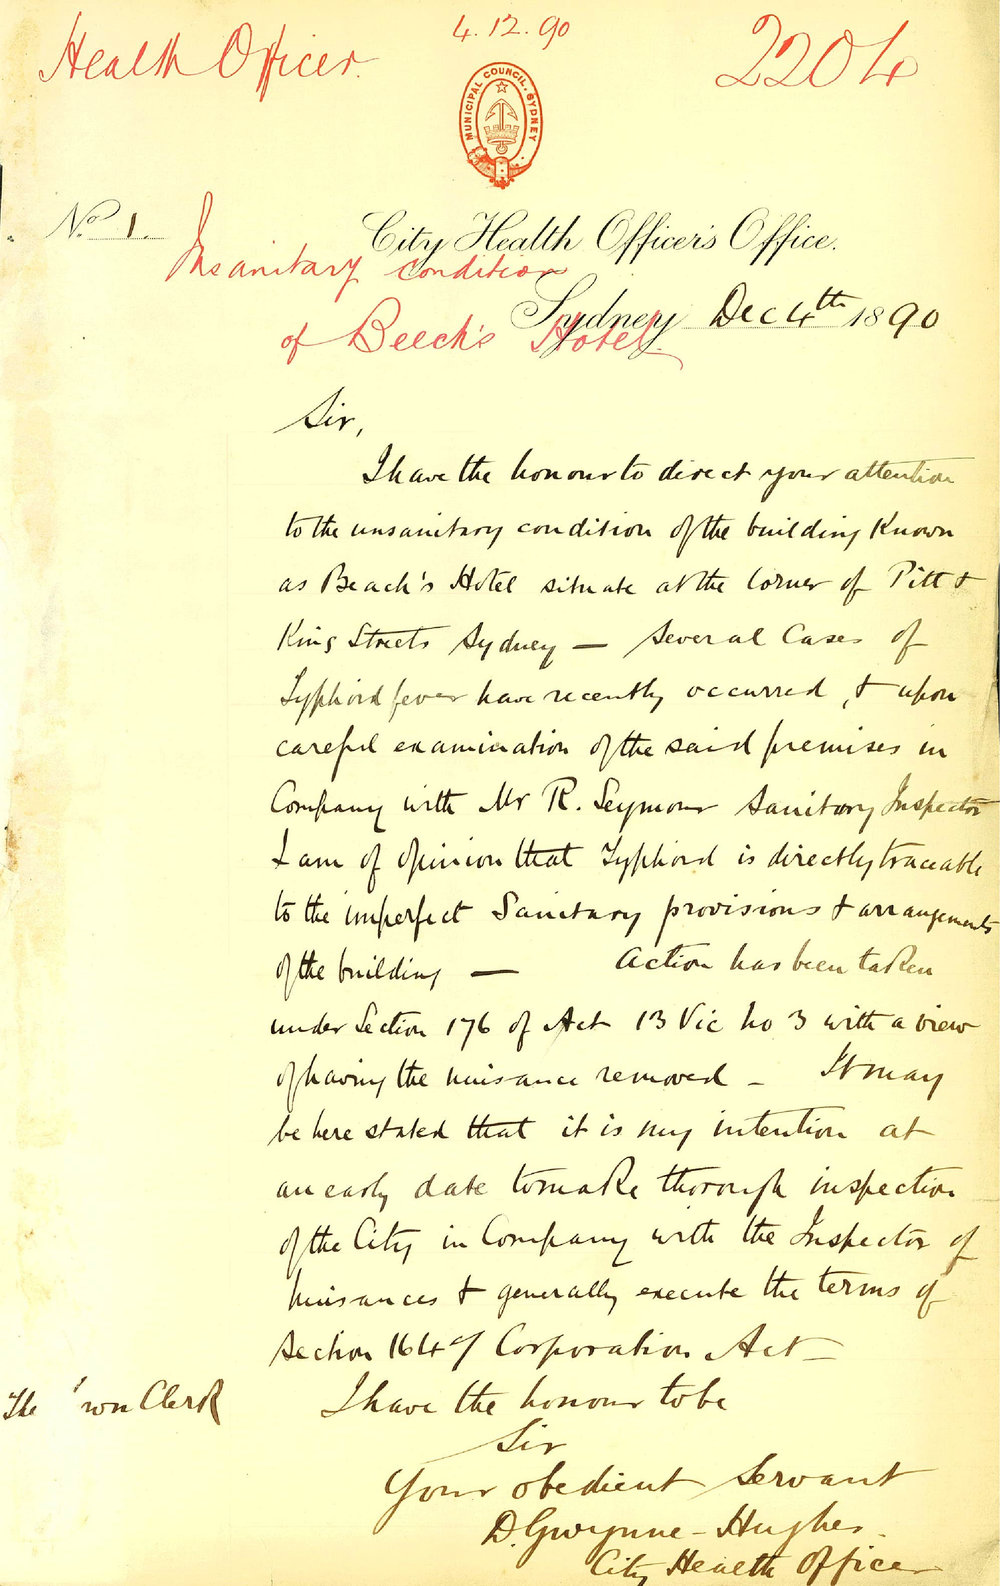 Health Officer.
4.12.90
2204
MUNICIPAL COUNCIL. SYDNEY
No. 1.
City Health Officer's Office.
Insanitary condition
Sydney Dec 4th 1890
of Beech's Hotel
Sir,
I have the honour to direct your attention
to the unsanitary condition of the building Known
as Beach's Hotel situate at the Corner of Pitt &
King Streets Sydney — Several Cases of
Typhoid fever have recently occurred, & upon
careful examination of the said premises in
Company with Mr R. Seymour Sanitary Inspector
I am of opinion that Typhoid is directly traceable
to the imperfect Sanitary provisions & arrangements
of the building — Action has been taken
under Section 176 of Act 13 Vic No 3 with a view
of having the nuisance removed — It may
be here stated that it is my intention at
an early date to make thorough inspection
of the City in Company with the Inspector of
Nuisances & generally execute the terms of
Section 164 of Corporation Act —
The Town Clerk
I have the honour to be
Sir
Your obedient Servant
D. Gwynne-Hughes.
City Health Officer